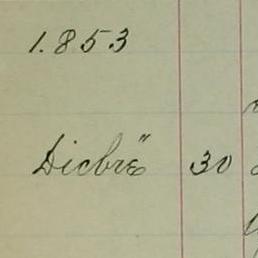 1.853
Dicbrē" 30